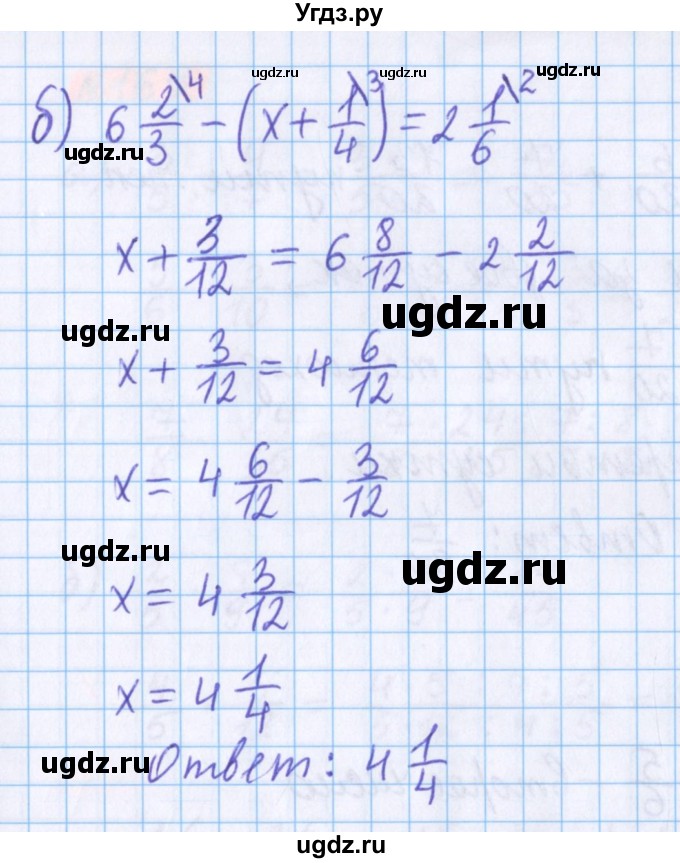 Угдз.ру
ugdz.ru ugdz.ru ugdz.ru
б) 6 2/3 \4 − (x + 1/4 \3) = 2 1/6 \2
ugdz.ru
x + 3/12 = 6 8/12 − 2 2/12
ugdz.ru ugdz.ru
x + 3/12 = 4 6/12
x = 4 6/12 − 3/12
ugdz.ru ugdz.ru
x = 4 3/12
x = 4 1/4
ugdz.ru
Ответ: 4 1/4
ugdz.ru